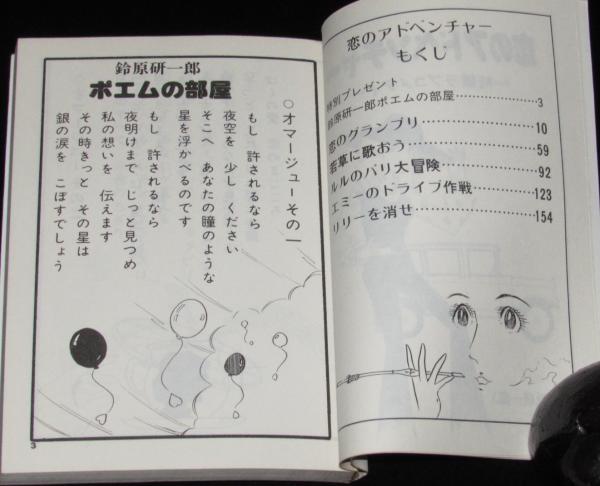 恋のアドベンチャー
もくじ
特別プレゼント
鈴原研一郎ポエムの部屋…………3
恋のグランプリ…………10
若草に歌おう…………59
ルルのパリ大冒険…………92
エミーのドライブ作戦…………123
リリーを消せ…………154
鈴原研一郎
ポエムの部屋
○オマージューその一
もし 許されるなら
夜空を 少し ください
そこへ あなたの瞳のような
星を浮かべるのです
もし 許されるなら
夜明けまで じっと見つめ
私の想いを 伝えます
その時きっと その星は
銀の涙を こぼすでしょう
3